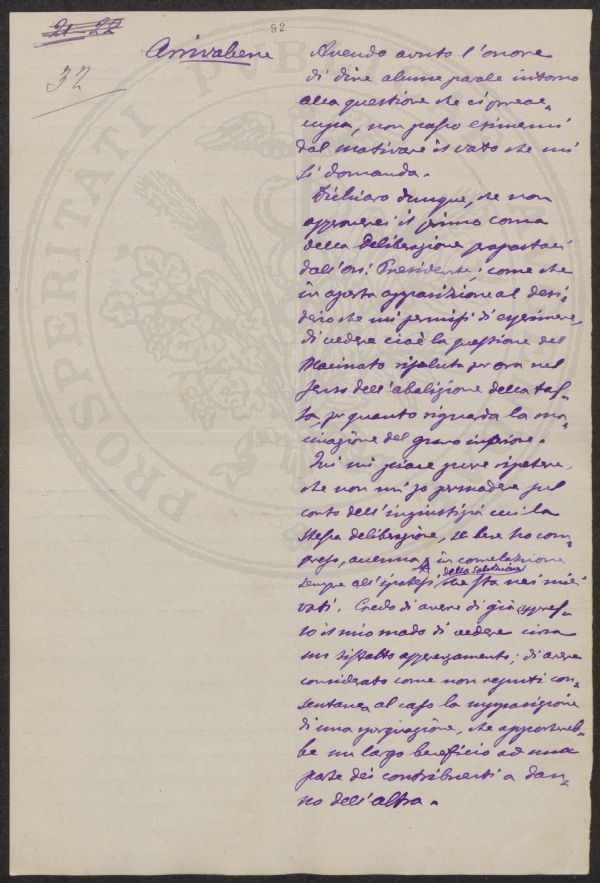 92
21-22
32
Arrivabene
Avendo avuto l'onore
di dire alcune parole intorno
alla questione che ci preoc-
cupa, non posso esimermi
dal motivare il voto che mi
si domanda.
Dichiaro dunque, che non
approverei il primo coma
della deliberazione propostaci
dall'on: Presidente; come che
in aperta opposizione al desi-
derio che mi permisi di esprimere,
di vedere cioè la questione del
Macinato risoluta per ora nel
senso dell'abolizione della tas-
sa, per quanto riguarda la ma-
cinazione del grano inferiore.
Qui mi piace pure ripetere,
che non mi so persuadere sul
conto dell'ingiustizia cui la
stessa deliberazione, se bene ho com-
preso, accenna, in correlazione
sempre all'ipotesi della soluzione che sta nei miei
voti. Credo di avere di già espres-
so il mio modo di vedere circa
un siffatto apprezzamento; di avere
considerato come non reputi con-
sentanea al caso la supposizione
di una sperequazione, che apporterеb-
be un largo beneficio ad una
parte dei contribuenti a dan-
no dell'altra.
PROSPERITATI PVB